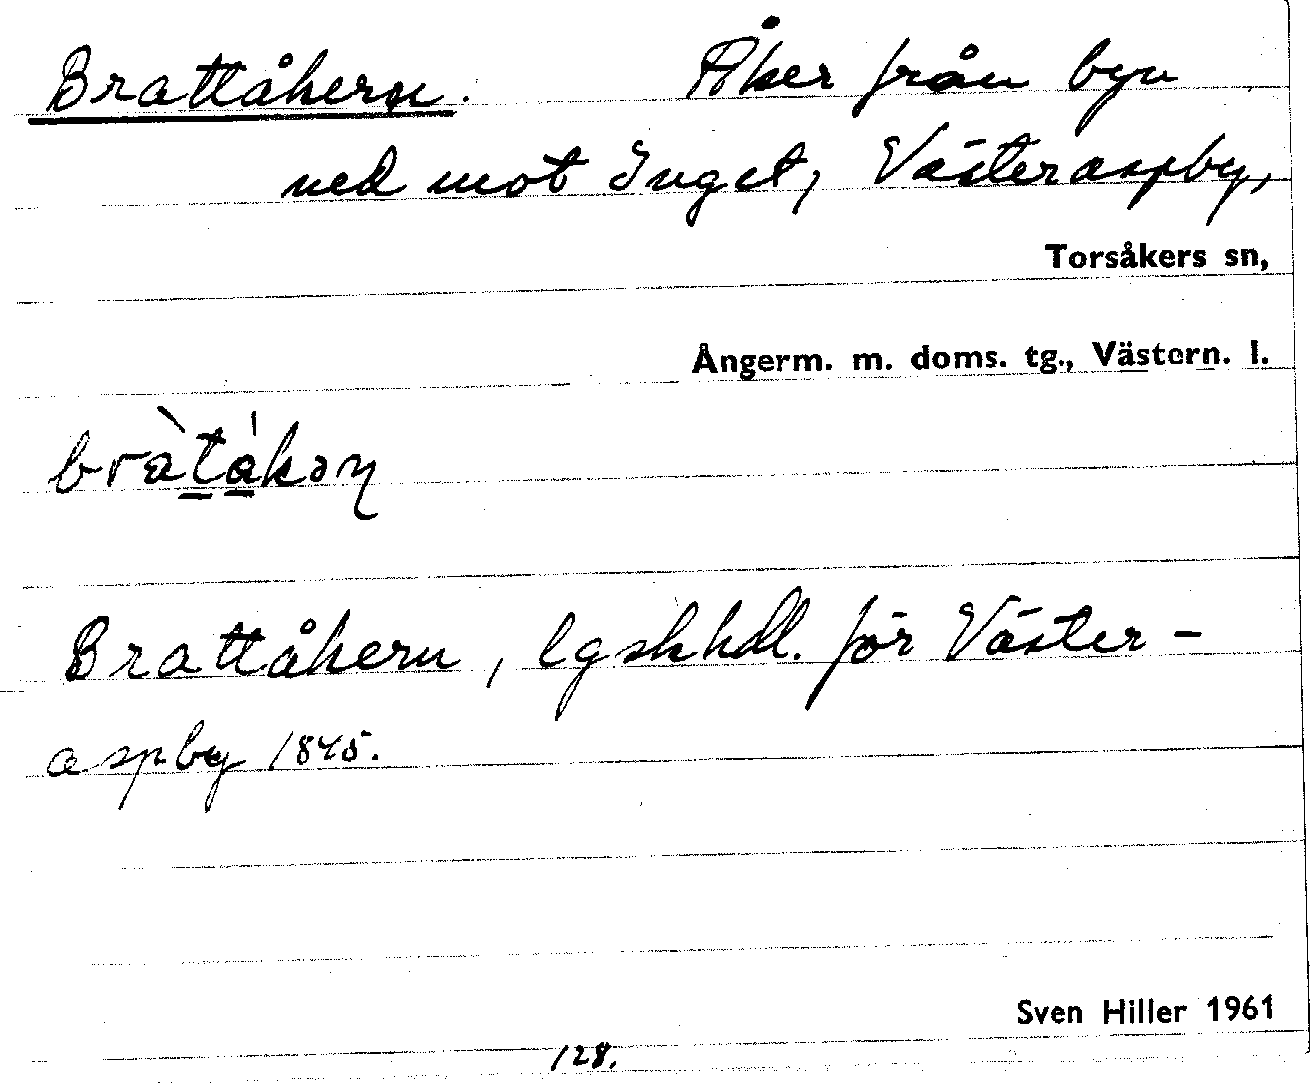 Brattåkern. Åker från byn
ned mot Inget, Västeraspby,
Torsåkers sn,
Ångerm. m. doms. tg., Västern. l.
bràt̲á̲kəɳ
Brattåkern, lgskhdl. för Väster-
aspby 1845.
Sven Hiller 1961
128.